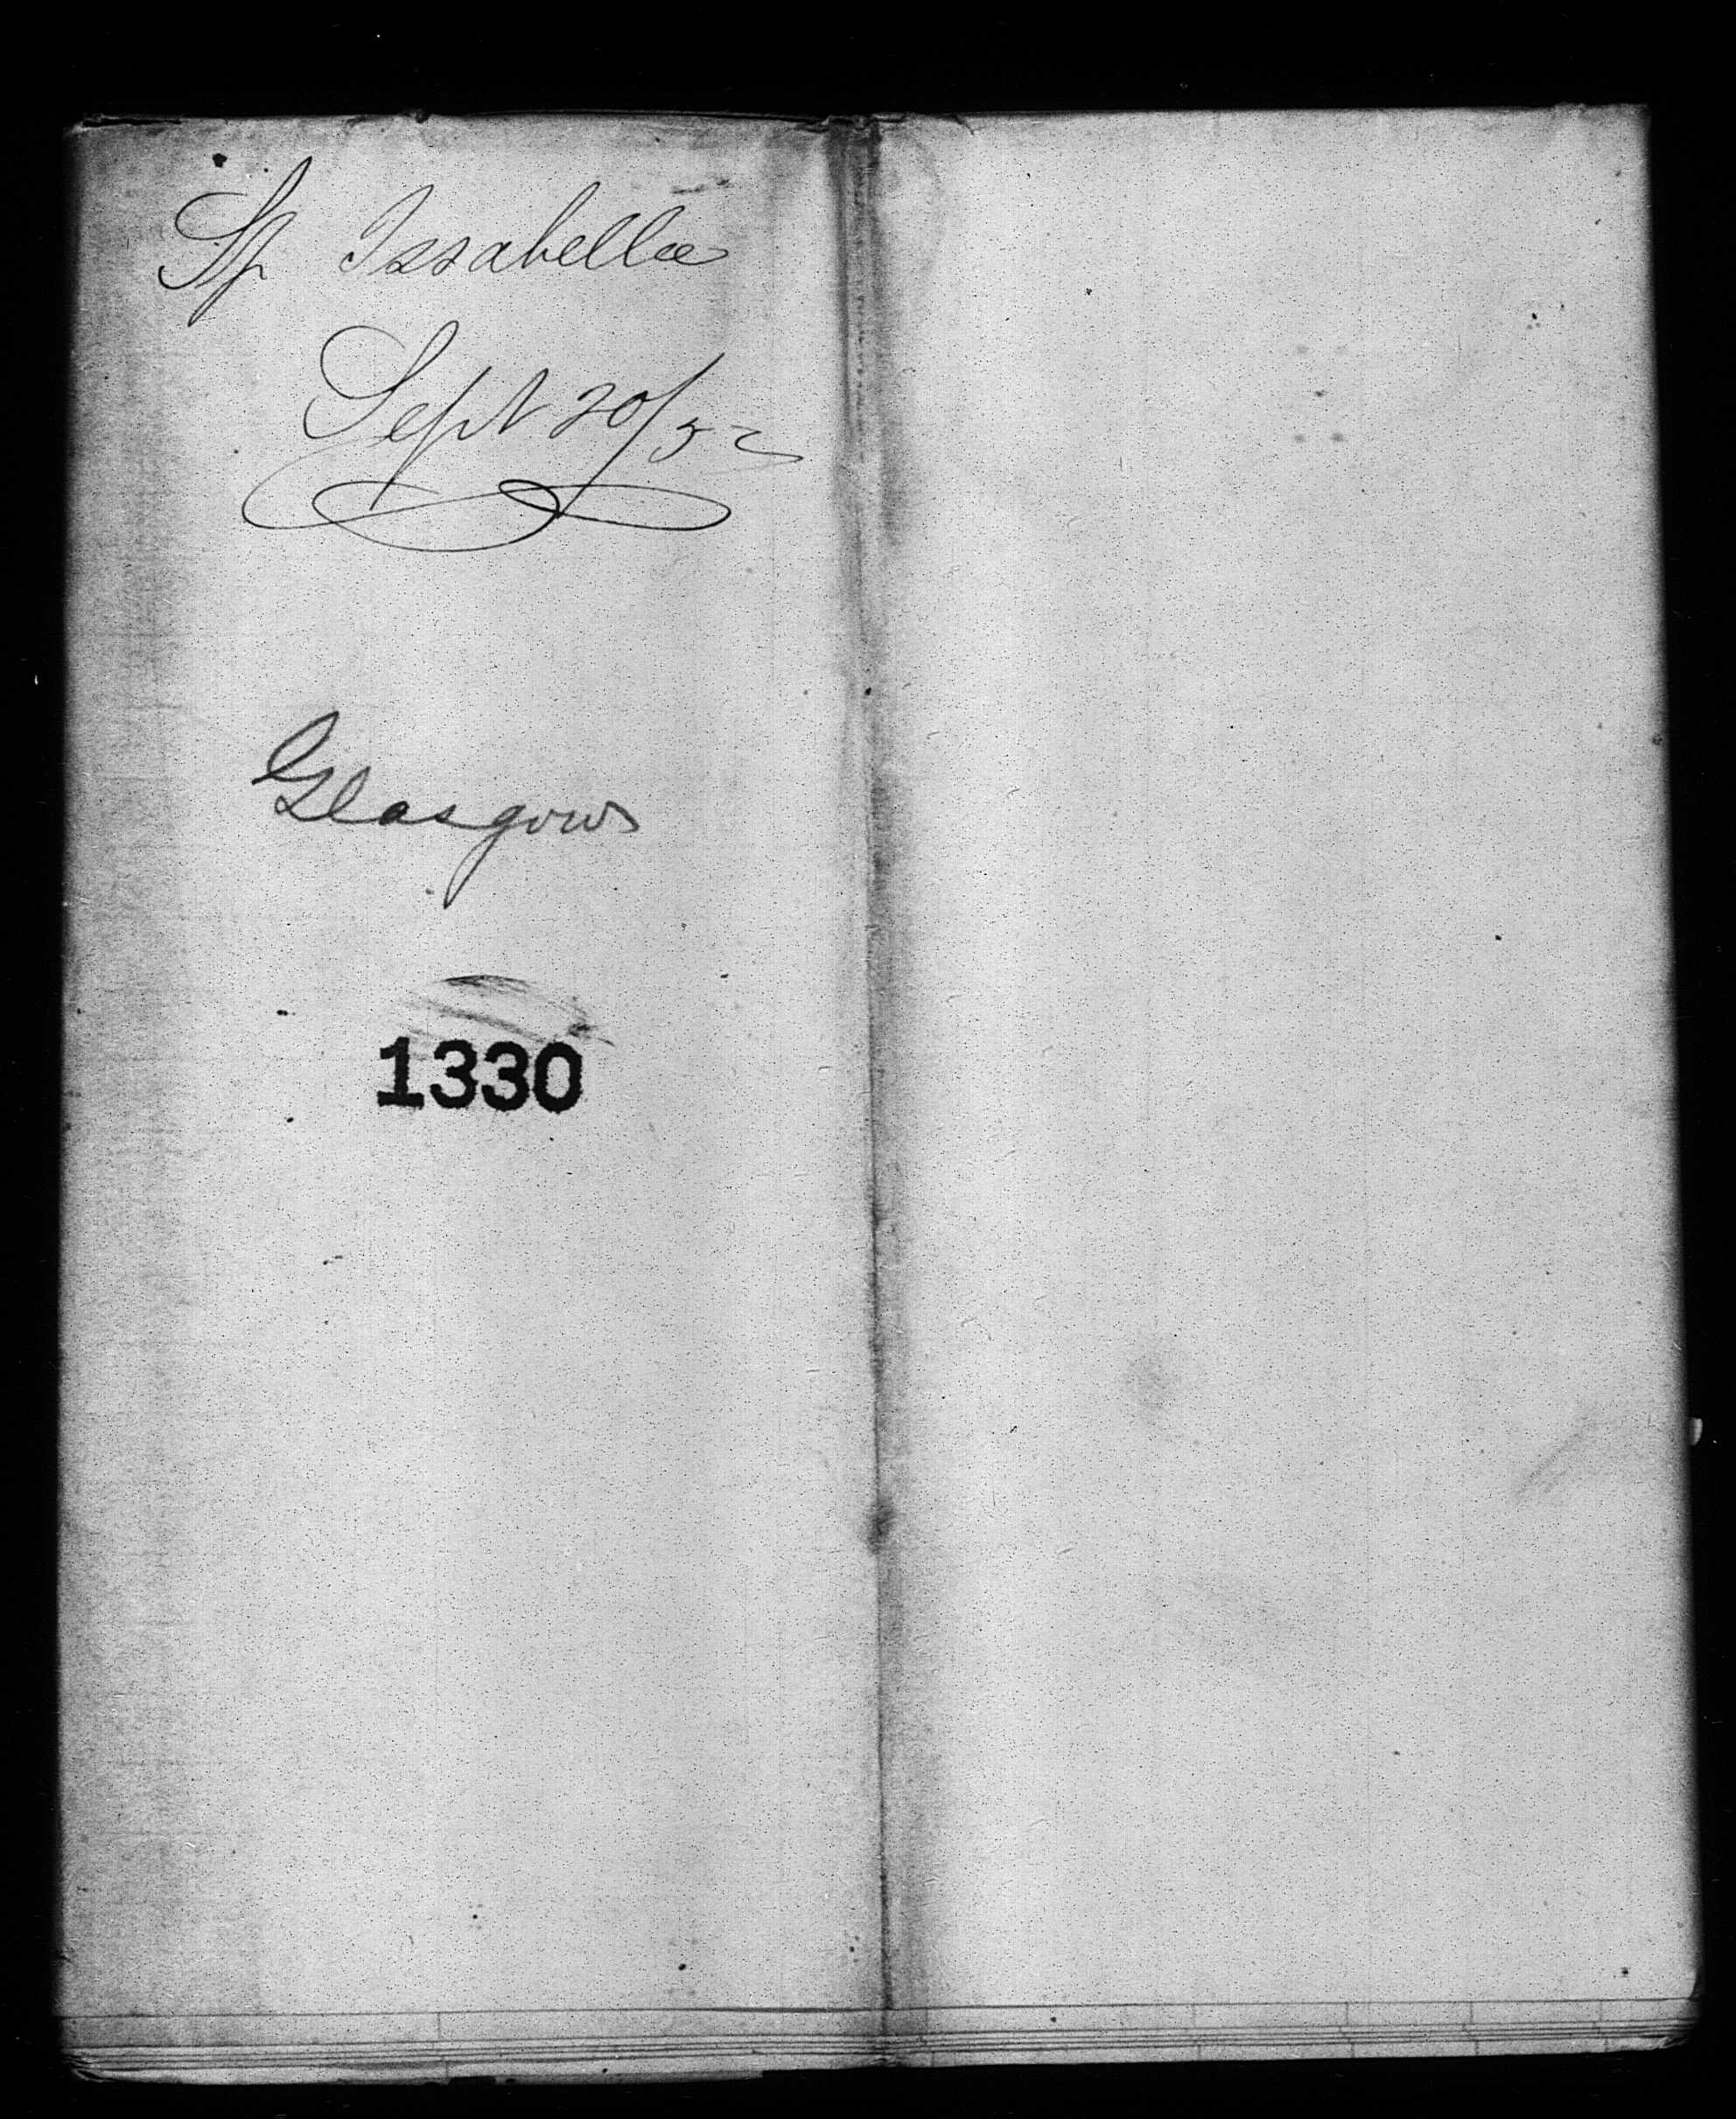 Sp Issabella
Sept 20/52
Glasgow
1330